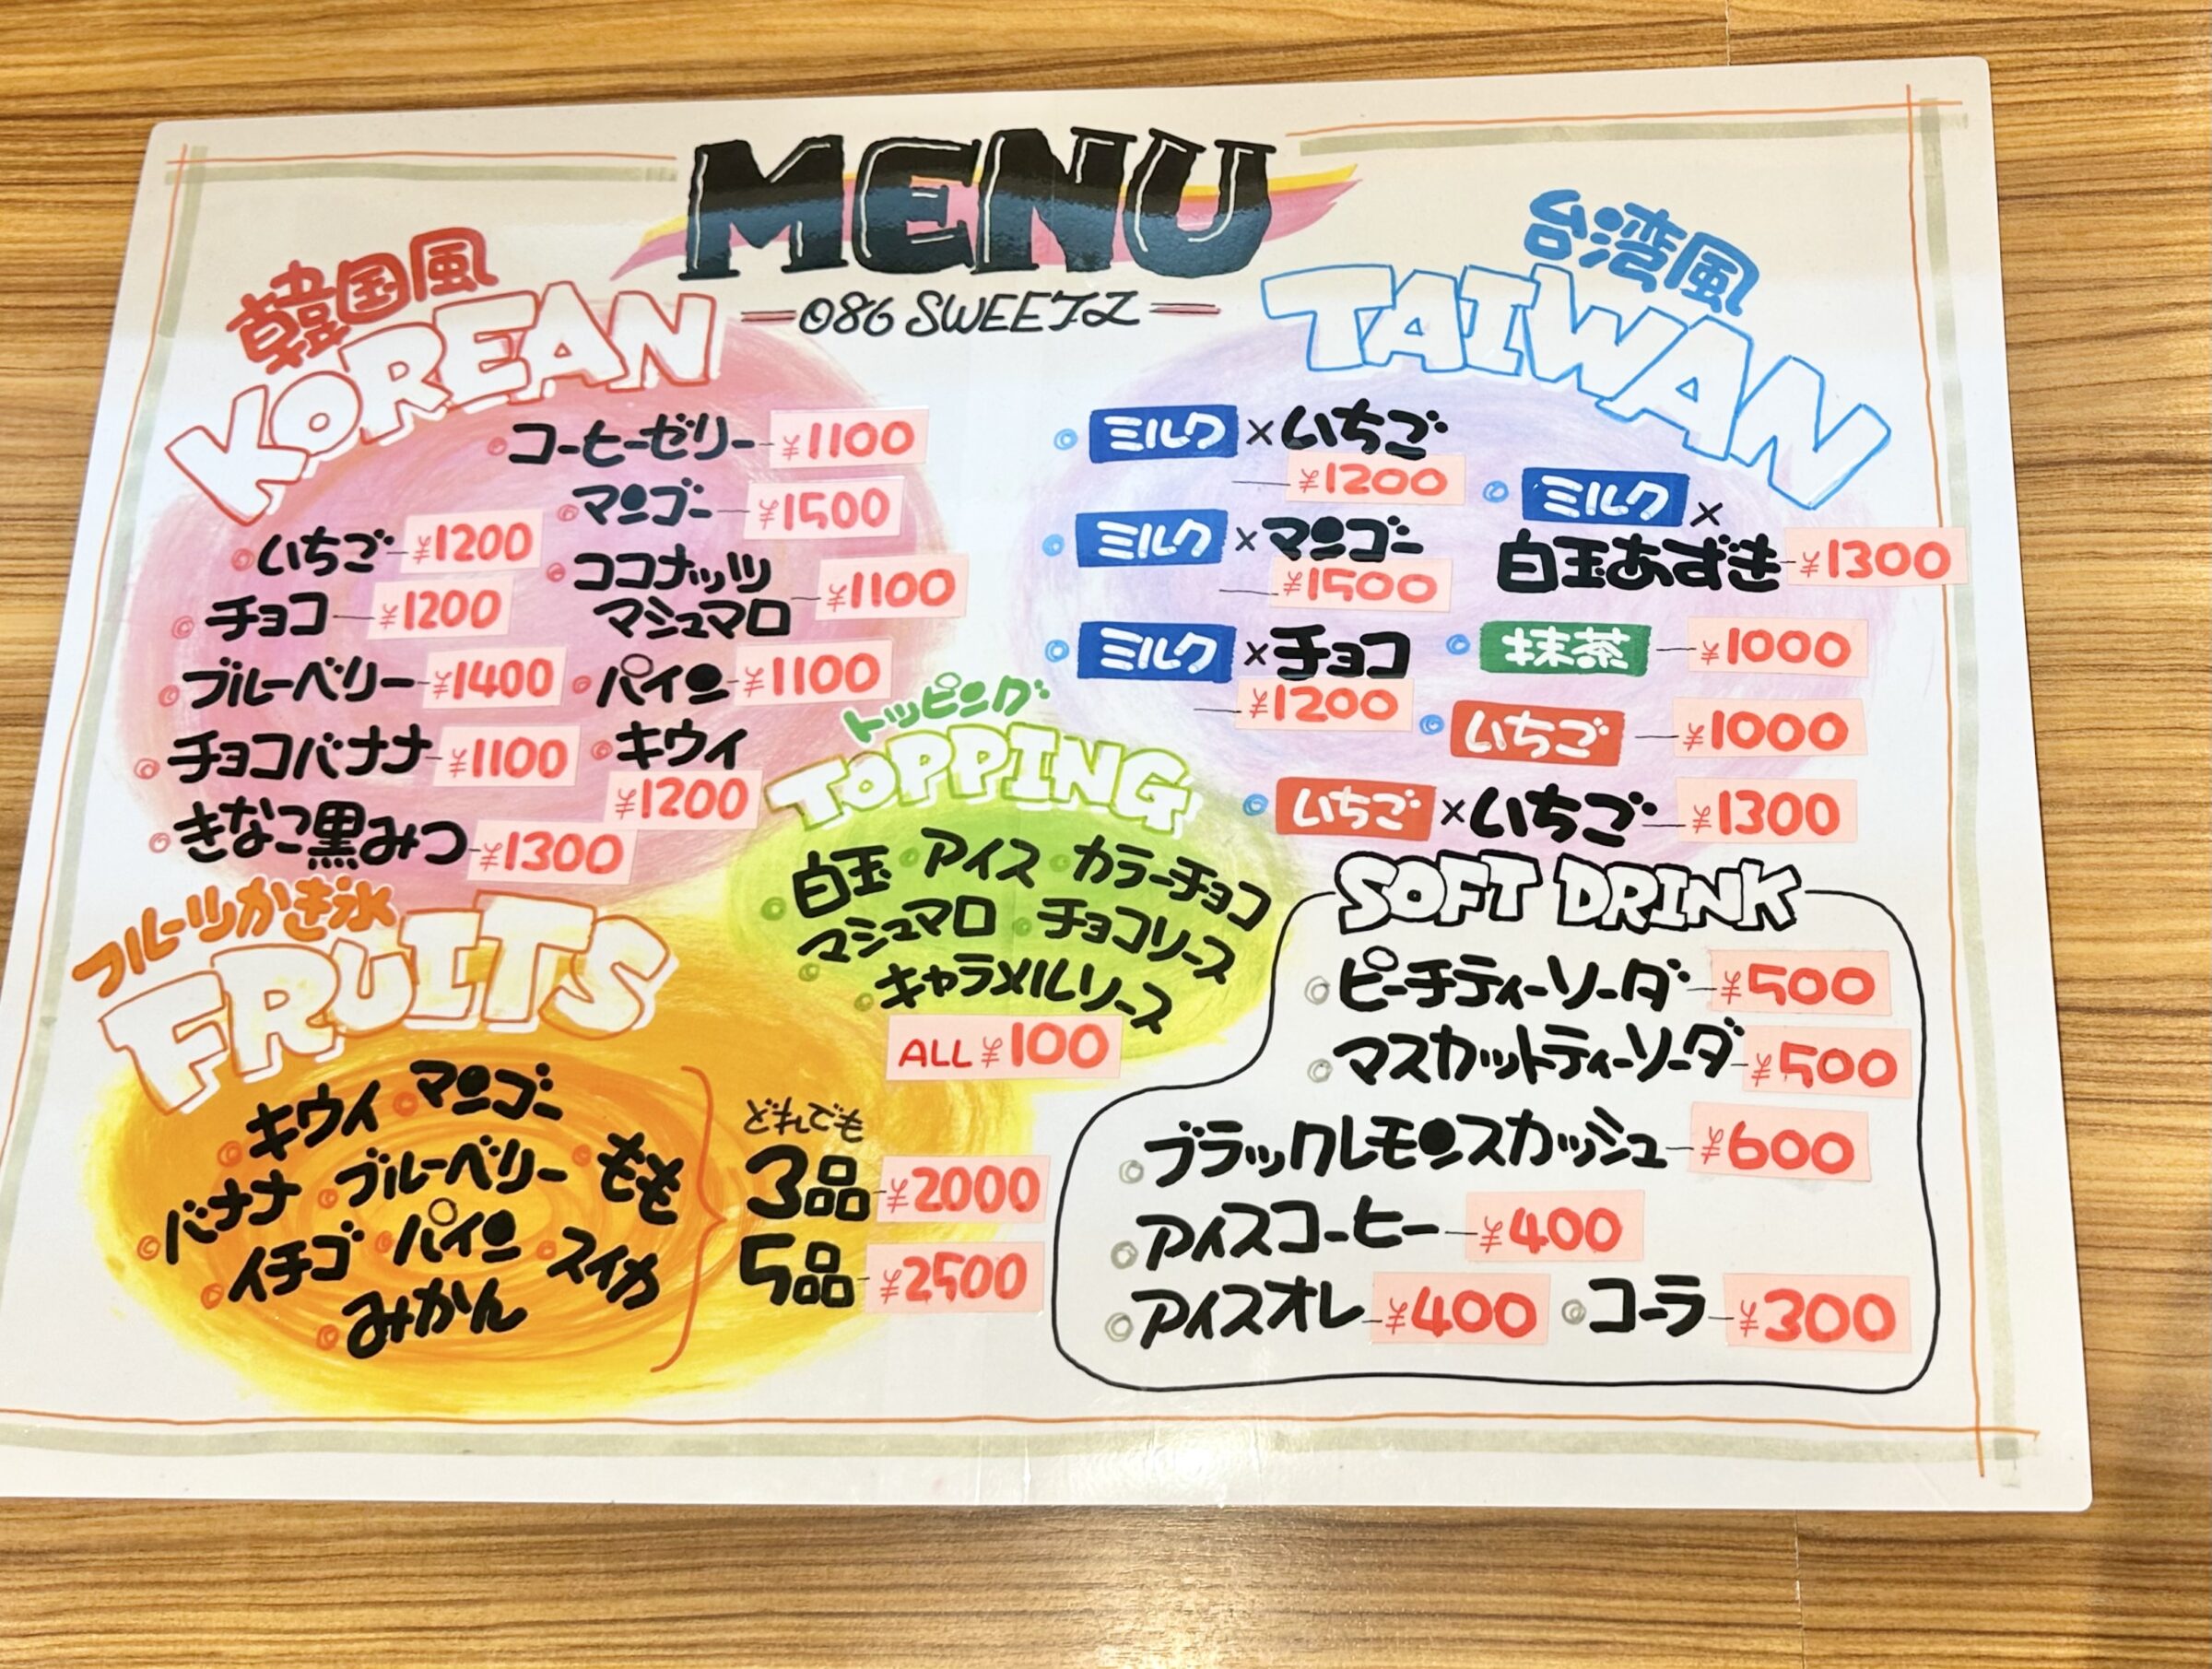 MENU
086 SWEETZ
韓国風
KOREAN
コーヒーゼリー ¥1100
マンゴー ¥1500
いちご ¥1200
ココナッツ
マシュマロ ¥1100
チョコ ¥1200
ブルーベリー ¥1400
パイン ¥1100
チョコバナナ ¥1100
キウイ
¥1200
きなこ黒みつ ¥1300
台湾風
TAIWAN
ミルク×いちご
¥1200
ミルク×
白玉あずき ¥1300
ミルク×マンゴー
¥1500
ミルク×チョコ
¥1200
抹茶 ¥1000
いちご ¥1000
いちご×いちご ¥1300
トッピング
TOPPING
白玉 アイス カラーチョコ
マシュマロ チョコソース
キャラメルソース
ALL ¥100
フルーツかき氷
FRUITS
キウイ マンゴー
バナナ ブルーベリー もも
イチゴ パイン スイカ
みかん
どれでも
3品 ¥2000
5品 ¥2500
SOFT DRINK
ピーチティーソーダ ¥500
マスカットティーソーダ ¥500
ブラックレモンスカッシュ ¥600
アイスコーヒー ¥400
アイスオレ ¥400 コーラ ¥300